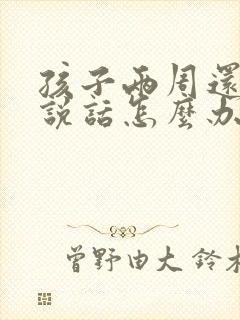 孩子兩周還
說話怎麼办
曾野由大 鈴木